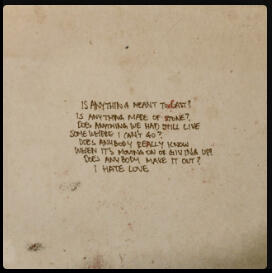 IS ANYTHING MEANT TO LAST?
IS ANYTHING MADE OF STONE?
DOES ANYTHING WE HAD STILL LIVE
SOMEWHERE I CAN'T GO?
DOES ANYBODY REALLY KNOW
WHEN IT'S MOVING ON OR GIVING UP?
DOES ANYBODY MAKE IT OUT?
I HATE LOVE